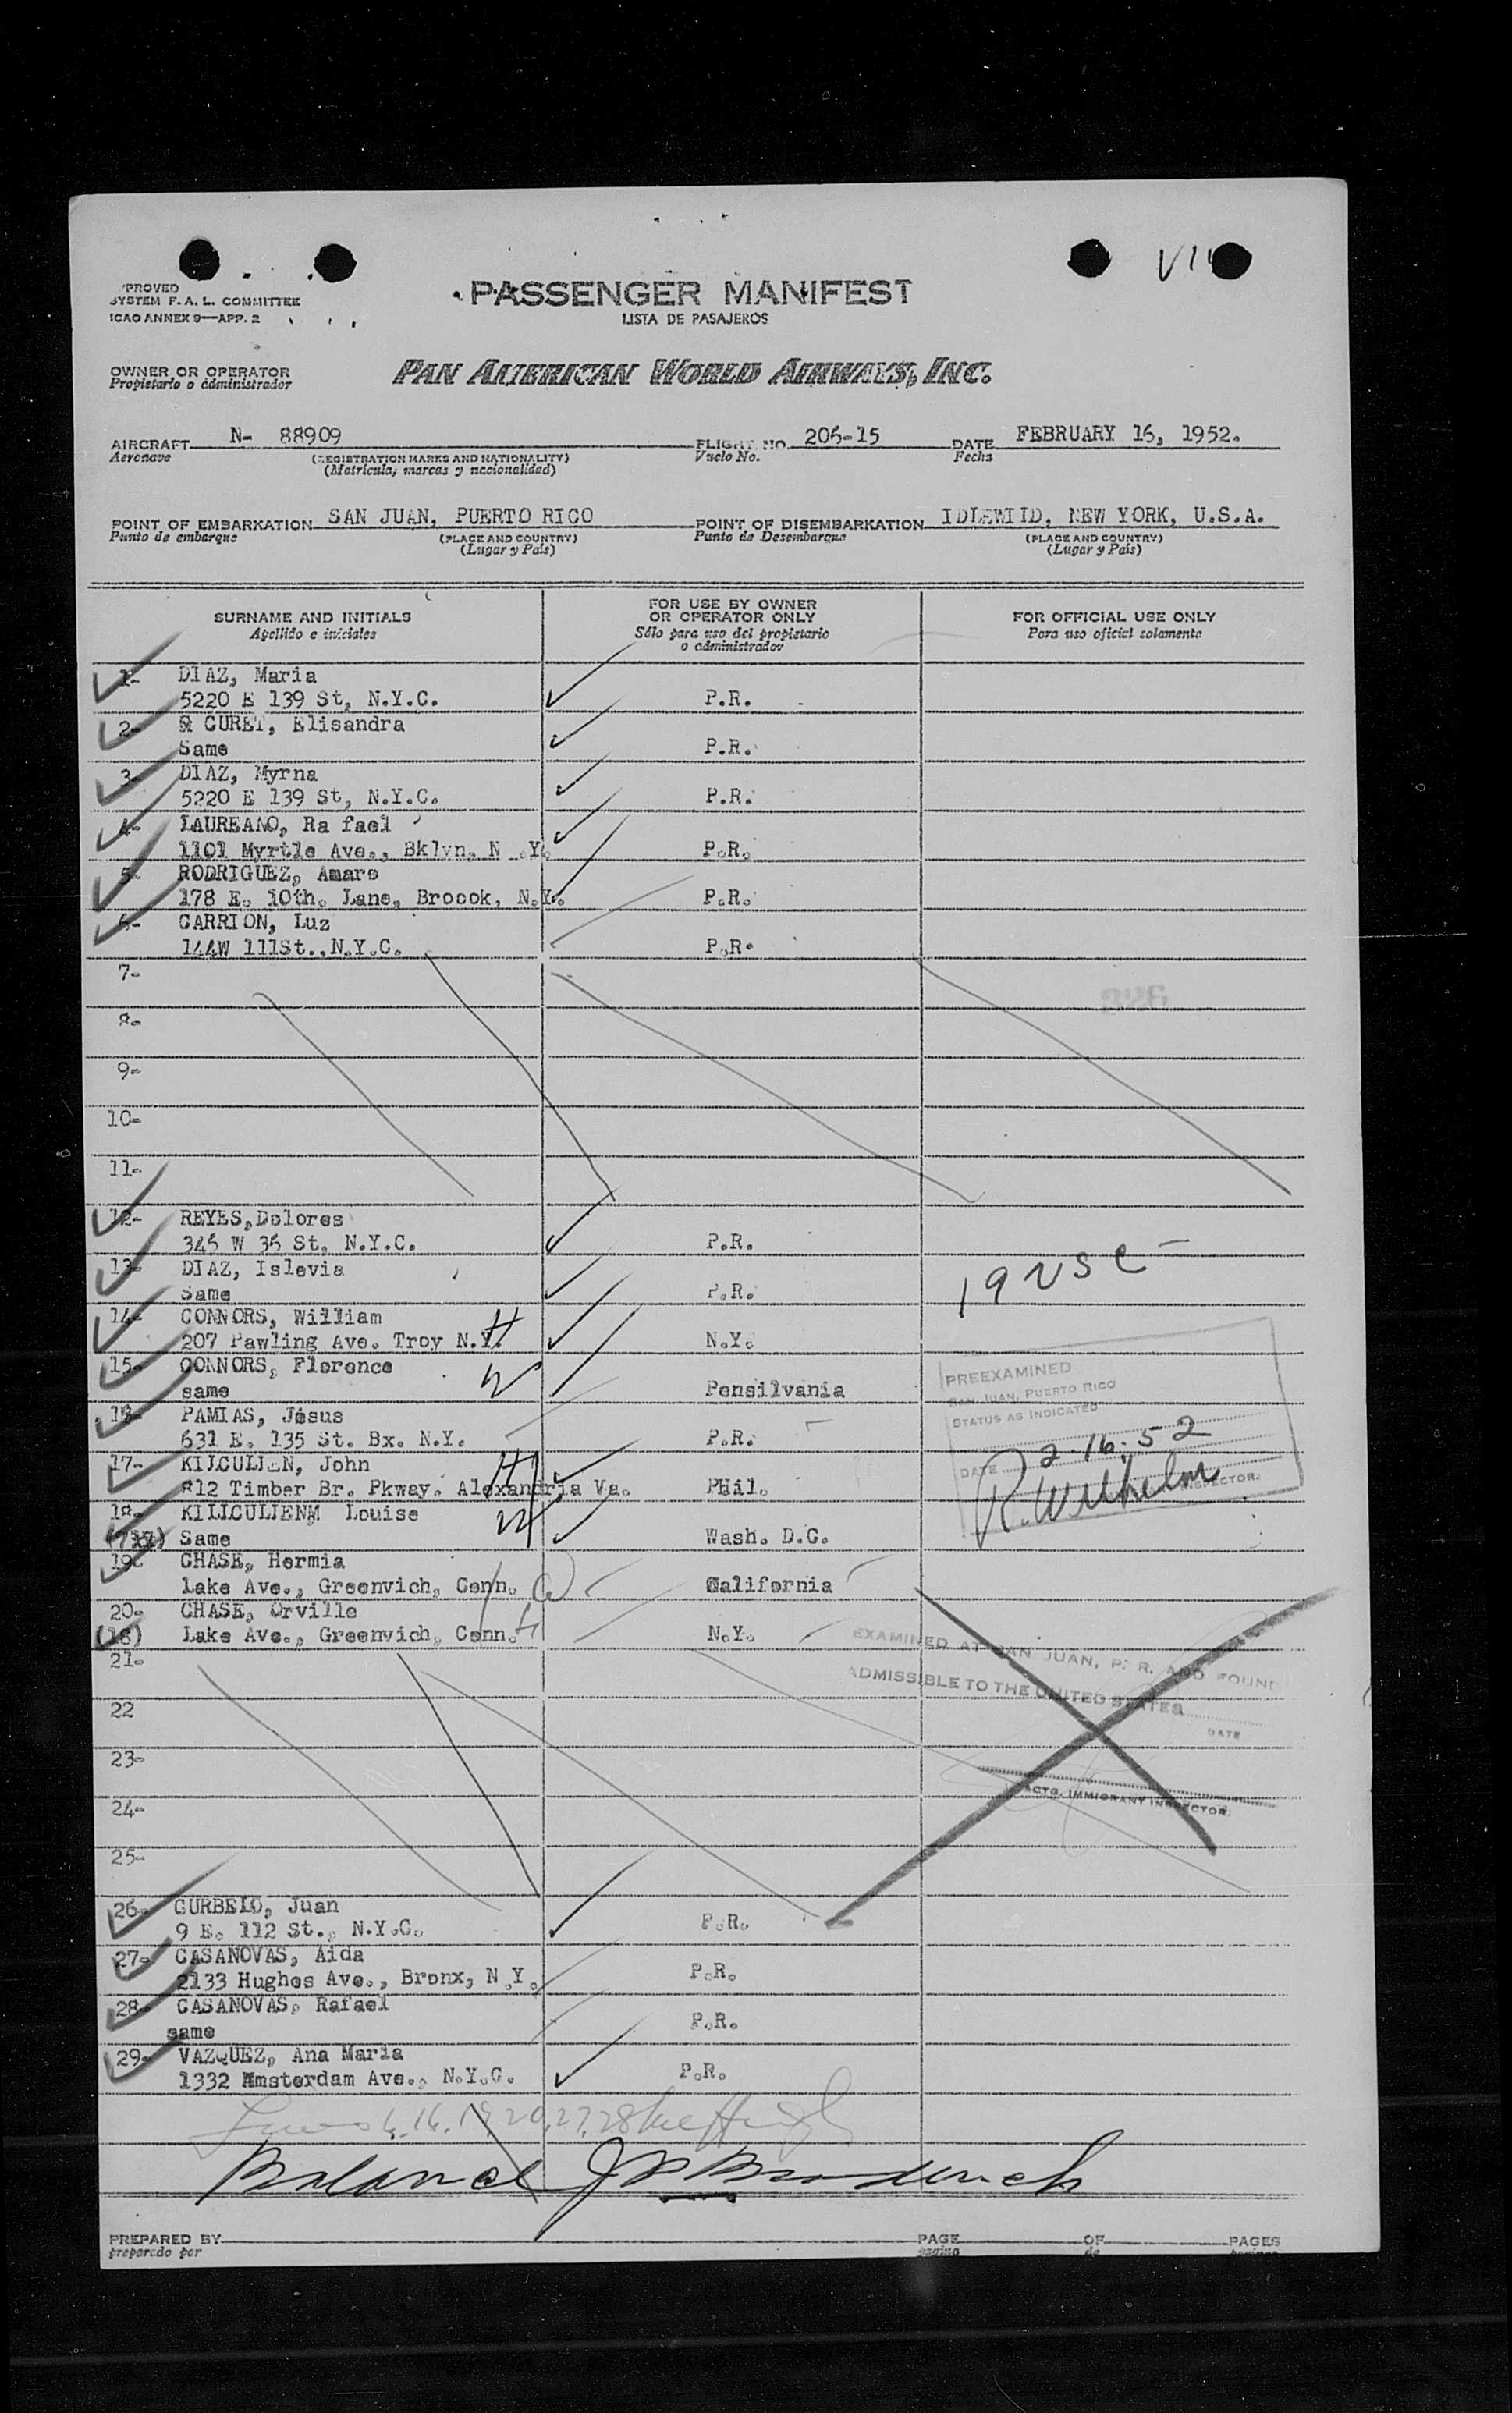 SYSTEM F. A. L. COMMITTEE
ICAO ANNEX 9—APP. 2
PASSENGER MANIFEST
LISTA DE PASAJEROS
OWNER OR OPERATOR
Propietario o administrador
PAN AMERICAN WORLD AIRWAYS, INC.
AIRCRAFT N- 88909 FLIGHT NO. 206-15 DATE FEBRUARY 16, 1952.
Aeronave (REGISTRATION MARKS AND NATIONALITY) Vuelo No. Fecha
(Matrícula, marcas y nacionalidad)
POINT OF EMBARKATION SAN JUAN, PUERTO RICO POINT OF DISEMBARKATION IDLEWILD, NEW YORK, U.S.A.
Punto de embarque (PLACE AND COUNTRY) Punto de Desembarque (PLACE AND COUNTRY)
(Lugar y País) (Lugar y País)
SURNAME AND INITIALS FOR USE BY OWNER OR OPERATOR ONLY FOR OFFICIAL USE ONLY
Apellido e iniciales Sólo para uso del propietario o administrador Para uso oficial solamente
1- DIAZ, Maria
5220 E 139 St, N.Y.C. P.R.
2- CURET, Elisandra
Same P.R.
3- DIAZ, Myrna
5220 E 139 St, N.Y.C. P.R.
4- LAUREANO, Ra fael
1101 Myrtle Ave., Bklyn, N .Y. P.R.
5- RODRIGUEZ, Amaro
178 E. 10th. Lane, Brocok, N.Y. P.R.
6- CARRION, Luz
144W 111St.,N.Y.C. P.R.
7-
8-
9-
10-
11-
12- REYES,Dolores
345 W 35 St, N.Y.C. P.R.
13- DIAZ, Islevia
Same P.R.
19 USC
14- CONNORS, William H
207 Pawling Ave. Troy N.Y. N.Y.
15- CONNORS, Florence W
same Pensilvania
PREEXAMINED
SAN JUAN, PUERTO RICO
STATUS AS INDICATED
DATE 2-16-52
R. Wilhelm
INSPECTOR.
16- PAMIAS, Jesus
631 E. 135 St. Bx. N.Y. P.R.
17- KILCULLEN, John H
812 Timber Br. Pkway. Alexandria Va. PHil.
18- KILLCULLENM Louise W
(17) Same Wash. D.C.
19- CHASE, Hermia
Lake Ave., Greenvich, Conn. W California
20- CHASE, Orville
(18) Lake Ave., Greenvich, Conn. H N.Y.
EXAMINED AT SAN JUAN, P. R. AND FOUND
ADMISSIBLE TO THE UNITED STATES
DATE
ACTG. IMMIGRANT INSPECTOR.
21-
22
23-
24-
25-
26- CURBELO, Juan
9 E. 112 St., N.Y.C. P.R.
27- CASANOVAS, Aida
2133 Hughes Ave., Bronx, N.Y. P.R.
28- CASANOVAS, Rafael
same P.R.
29- VAZQUEZ, Ana Maria
1332 Amsterdam Ave., N.Y.C. P.R.
6. 16. 19, 20, 27, 28
Balance J P Broderick
PREPARED BY PAGE OF PAGES
preparado por página de